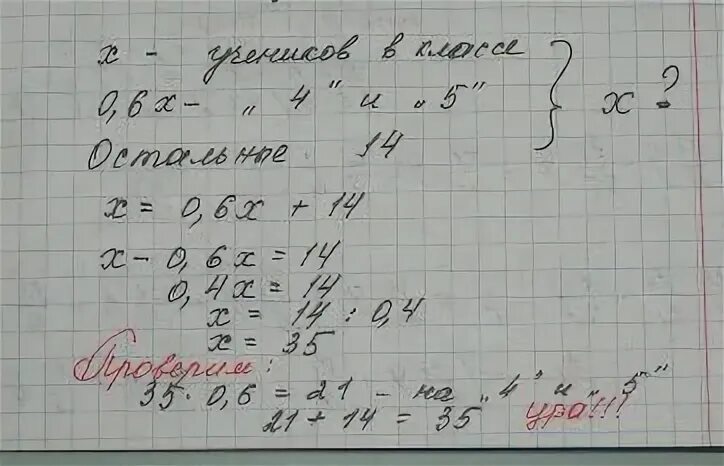 х - учеников в классе
0,6х - „4" и „5"
Остальные 14
х - ?
х = 0,6х + 14
х - 0,6х = 14
0,4х = 14
х = 14 : 0,4
х = 35
Проверим:
35 · 0,6 = 21 - на „4" и „5"
21 + 14 = 35 ура!!!